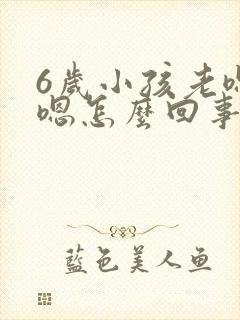 6歲小孩老嗯
嗯怎麼回事
藍色美人鱼